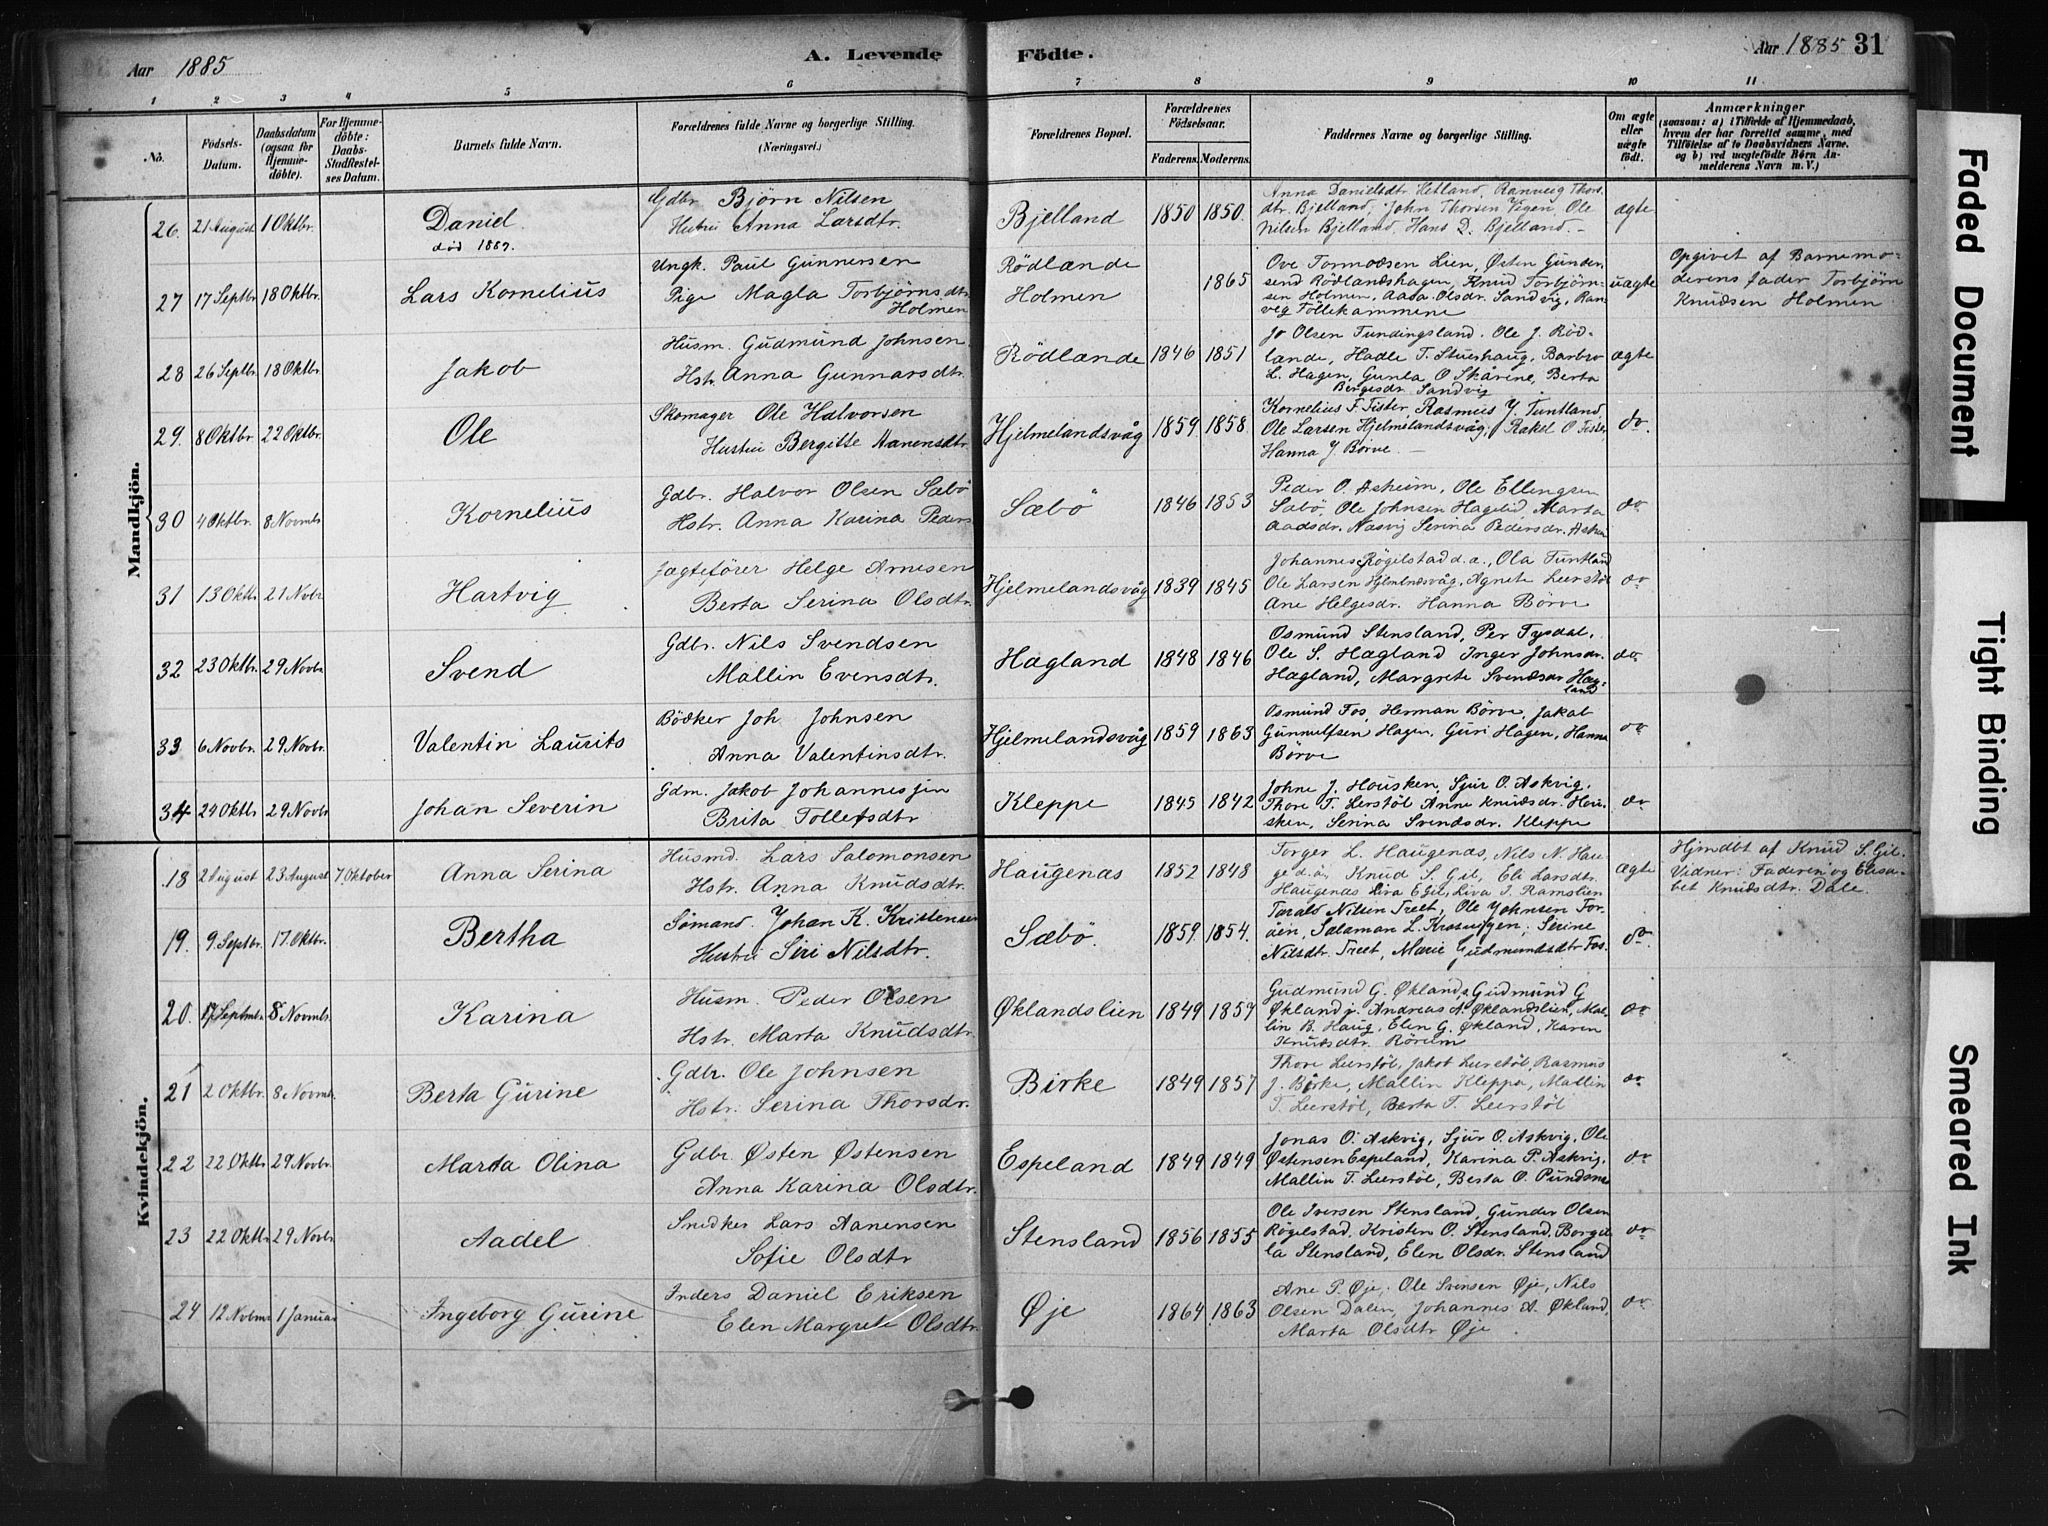 Aar 1885
A. Levende
Födte.
Aar 1885 31
1 2 3 4 5 6 7 8 9 10 11
No.
Födsels-Datum.
Daabsdatum (ogsaa for Hjemmedöbte).
For Hjemmedöbte: Daabs-Stadfæstelses Datum.
Barnets fulde Navn.
Forældrenes fulde Navne og borgerlige Stilling.
(Næringsvei.)
Forældrenes Bopæl.
Forældrenes Födselsaar.
Faderens. Moderens.
Faddernes Navne og borgerlige Stilling.
Om ægte eller uægte födt.
Anmærkninger
(saasom: a) i Tilfælde af Hjemmedaab,
hvem der har forrettet samme, med
Tilföielse af to Daabsvidners Navne.
og b) ved uægtefödte Börn An-
melderens Navn m. V.)
Mandkjön.
26. 21 August 1 Oktbr. Daniel død 1887. Gdbr Björn Nilsen
Hustru Anna Larsdtr. Bjelland 1850 1850. Anna Danielsdtr Hetland, Ranveig Thors-
dtr. Bjelland, John Thorsen Vigen, Ole
Nilsen Bjelland, Hans D. Bjelland. ægte
27 17 Septbr. 18 Oktbr. Lars Kornelius Ungk. Paul Gunnersen
Pige Magla Torbjörnsdtr
Holmen Rödlande
Holmen 1865 Ove Tormodsen Lien, Østen Gunder-
send Rödlandshagen, Knud Torbjörn-
sen Holmen, Aasa Olsdr. Sandvig, Ran-
veg Tollekammene uægte Opgivet af Barnemo-
derens fader Torbjörn
Knudsen Holmen
28 26 Septbr. 18 Oktbr. Jakob Husm. Gudmund Johnsen
Hstr. Anna Gunnarsdtr. Rödlande 1846 1851 Jo Olsen Fundingsland. Ole J. Röd-
lande, Hadle T. Stuerhaug, Barbro
L. Hagen, Gunla O Skårine, Berta
Bergesdr. Sandvig ægte
29. 8 Oktbr. 22 Oktbr. Ole Skomager Ole Halvorsen
Hustru Bergitte Aanensdtr. Hjelmelandsvåg 1859 1858. Kornelius F. Fister, Rasmus J. Tuntland,
Ole Larsen Hjelmelandsvåg, Rakel O Fister
Hanna J Börve. do.
30 4 Oktbr. 8 Novmb. Kornelius Gdbr. Halvor Olsen Sæbö
Hstr. Anna Karina Peders Sæbö 1846 1853 Peder O. Asheim, Ole Ellingsen
Sæbö, Ole Johnsen Hagelid, Marta
Aadsdr. Næsvig Serina Pedersdr. Ashei do
31 13 Oktbr. 21 Novbr Hartvig Jægtefører Helge Arnesen
Berta Serina Olsdtr. Hjelmelandsvåg 1839 1845 Johannes Rögelstad d.a., Ola Tuntland
Ole Larsen Hjelmlndsvåg, Agnete Leerstöl
Ane Helgesdr. Hanna Börve do
32 23 Oktbr. 29 Novbr. Svend Gdbr. Nils Svendsen
Mallin Evensdtr. Hagland 1848 1846 Osmund Stensland, Per Tysdal,
Ole S. Hagland Inger Johnsdr.
Hagland, Margrete Svendsdr. Hag-
land do
33 6 Novbr. 29 Novbr. Valentin Laurits Bödker Joh. Johnsen
Anna Valentinsdtr. Hjelmelandsvåg 1859 1863 Osmund Fos, Herman Börve, Jakob
Gunnulfsen Hagen, Guri Hagen, Hanna
Börve do
34 24 Oktbr 29 Novbr Johan Severin Gdm. Jakob Johannesjen
Brita Tollefsdtr Kleppe 1845 1842 Johne J. Housken, Sjur O. Askvig,
Thore T. Leerstöl Anne Knudsdr. Hou-
sken, Serina Svendsdr. Kleppe do
Kvindekjön.
18 2 August 23 August 7. Oktober Anna Serina Husmd. Lars Salomonsen
Hstr. Anna Knudsdtr. Haugenæs 1852 1848 Torger L. Haugenæs, Nils N. Hau-
ge d.a, Knud S. Gil, Eli Larsdtr.
Haugenæs Liva E Gil, Liva T. Ramslien ægte Hjmdbt af Knud S. Gil.
Vidner: Faderen og Elisa-
bet Knudsdtr. Dale.
19. 9. Septbr. 17. Oktbr. Bertha Sömand. Johan K. Kristensen
Hustru Siri Nilsdtr. Sæbö. 1859. 1854. Tarald Nilsen Treet, Ole Johnsen For-
åen, Salaman L. Krosvigen, Serine
Nilsdtr. Treet, Marie Gudmundsdtr Fos. do.
20. 17 Septmbr. 8 Novmb. Karina Husm. Peder Olsen
Hstr. Marta Knudsdtr. Øklandslien 1849 1859 Gudmund G. Økland, Gudmund G
Økland j. Andreas A. Øklandslien, Mal-
lin B. Haug, Elen G. Økland, Karen
Knudsdtr. Rörem do
21 2 Oktbr. 8 Novmb. Berta Gurine Gdbr. Ole Johnsen
Hstr. Serina Thorsdr. Birke 1849 1857 Thore Leerstöl, Jakob Leerstöl Rasmus
J. Birke, Mallin Kleppa, Mallin
T. Leerstöl, Berta T. Leerstöl do
22 22 Oktbr 29 Novbr. Marta Olina Gdbr. Østen Østensen
Anna Karina Olsdtr. Espeland 1849 1849 Jonas O. Askvig, Sjur O. Askvig, Ole
Østensen Espeland, Karina P. Askvig,
Mallin T. Leerstöl, Berta O. Pundsnes do
23 22 Oktbr 29 Novbr. Aadel Snedker Lars Aanensen
Sofie Olsdtr Stensland 1856 1855 Ole Iversen Stensland, Gunder Olsen
Rögelstad, Kristen O. Stensland, Borgil-
la Stensland, Elen Olsdr. Stensland do
24 12 Novbr 1 Januar Ingeborg Gurine Inders Daniel Eriksen
Elen Margrete Olsdtr. Øje 1864 1863 Ane P. Øje, Ole Svensen Øje, Nils
Olsen Dalen, Johannes A. Økland,
Marta Olsdtr Øje do
Faded Document
Tight Binding
Smeared Ink